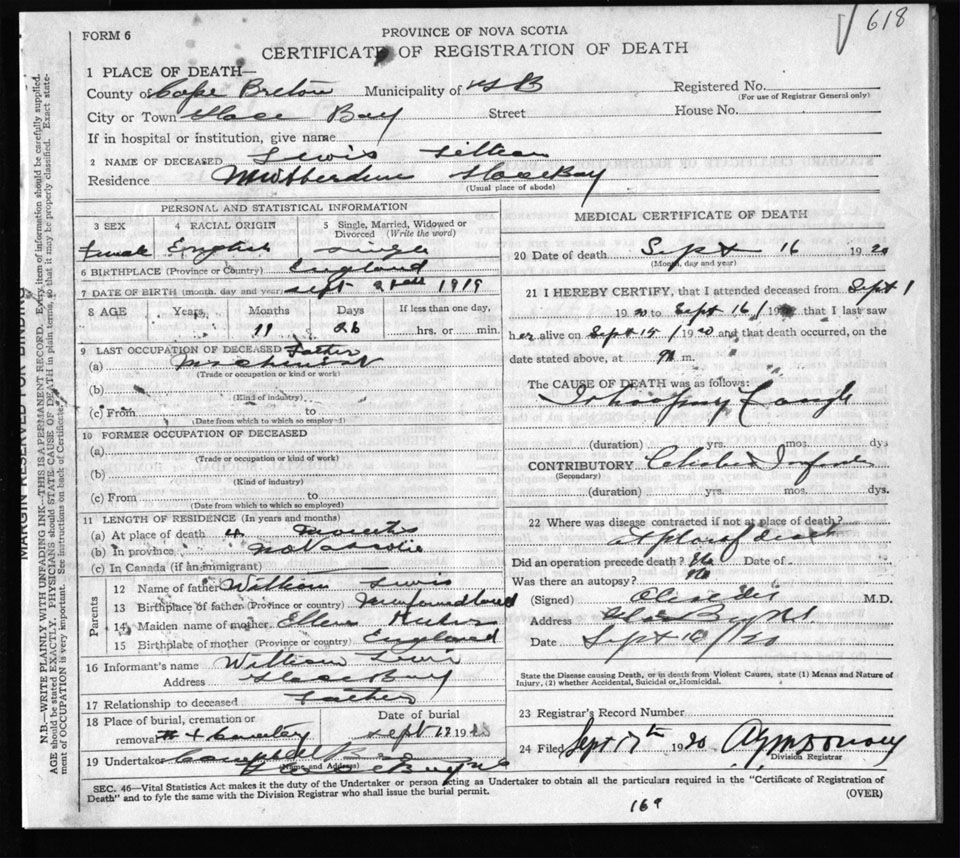 618
FORM 6
PROVINCE OF NOVA SCOTIA
CERTIFICATE OF REGISTRATION OF DEATH
1 PLACE OF DEATH—
County of Cape Breton Municipality of Registered No.
(For use of Registrar General only)
City or Town Glace Bay Street House No.
If in hospital or institution, give name
2 NAME OF DECEASED Lewis
Residence New Aberdeen Glace Bay
(Usual place of abode)
PERSONAL AND STATISTICAL INFORMATION
3 SEX 4 RACIAL ORIGIN 5 Single, Married, Widowed or Divorced (Write the word)
Female English Single
6 BIRTHPLACE (Province or Country) England
7 DATE OF BIRTH (month, day and year) Sept 1919
8 AGE Years Months Days If less than one day,
11 26 hrs. or min.
9 LAST OCCUPATION OF DECEASED Father
(a)
(Trade or occupation or kind of work)
(b)
(Kind of industry)
(c) From to
(Date from which to which so employed)
10 FORMER OCCUPATION OF DECEASED
(a)
(Trade or occupation or kind of work)
(b)
(Kind of industry)
(c) From to
(Date from which to which so employed)
11 LENGTH OF RESIDENCE (In years and months)
(a) At place of death 4 months
(b) In province Nova Scotia
(c) In Canada (if an immigrant)
Parents
12 Name of father William Lewis
13 Birthplace of father (Province or country) Newfoundland
14 Maiden name of mother Ellen
15 Birthplace of mother (Province or country) England
16 Informant's name William Lewis
Address Glace Bay
17 Relationship to deceased Father
18 Place of burial, cremation or removal Date of burial
Sept 17 1920
19 Undertaker
(Name and Address)
MEDICAL CERTIFICATE OF DEATH
20 Date of death Sept 16 1920
(Month, day and year)
21 I HEREBY CERTIFY, that I attended deceased from Sept 1
1920 to Sept 16/ 19 that I last saw
her alive on Sept 15/1920 and that death occurred, on the
date stated above, at m.
The CAUSE OF DEATH was as follows:
Whooping Cough
(duration) yrs. mos. dys
CONTRIBUTORY Cholera
(Secondary)
(duration) yrs. mos. dys.
22 Where was disease contracted if not at place of death?
At place of death
Did an operation precede death? No Date of
Was there an autopsy? No
(Signed) M.D.
Address Glace Bay N.S.
Date Sept 16/20
State the Disease causing Death, or in death from Violent Causes, state (1) Means and Nature of
Injury, (2) whether Accidental, Suicidal or Homicidal.
23 Registrar's Record Number
24 Filed Sept 17th 1920
Division Registrar
SEC. 46—Vital Statistics Act makes it the duty of the Undertaker or person acting as Undertaker to obtain all the particulars required in the "Certificate of Registration of
Death" and to fyle the same with the Division Registrar who shall issue the burial permit. (OVER)
169
MARGIN RESERVED FOR BINDING
N.B.—WRITE PLAINLY WITH UNFADING INK—THIS IS A PERMANENT RECORD. Every item of information should be carefully supplied.
AGE should be stated EXACTLY. PHYSICIANS should STATE CAUSE OF DEATH in plain terms, so that it may be properly classified. Exact state-
ment of OCCUPATION is very important. See instructions on back of Certificate.